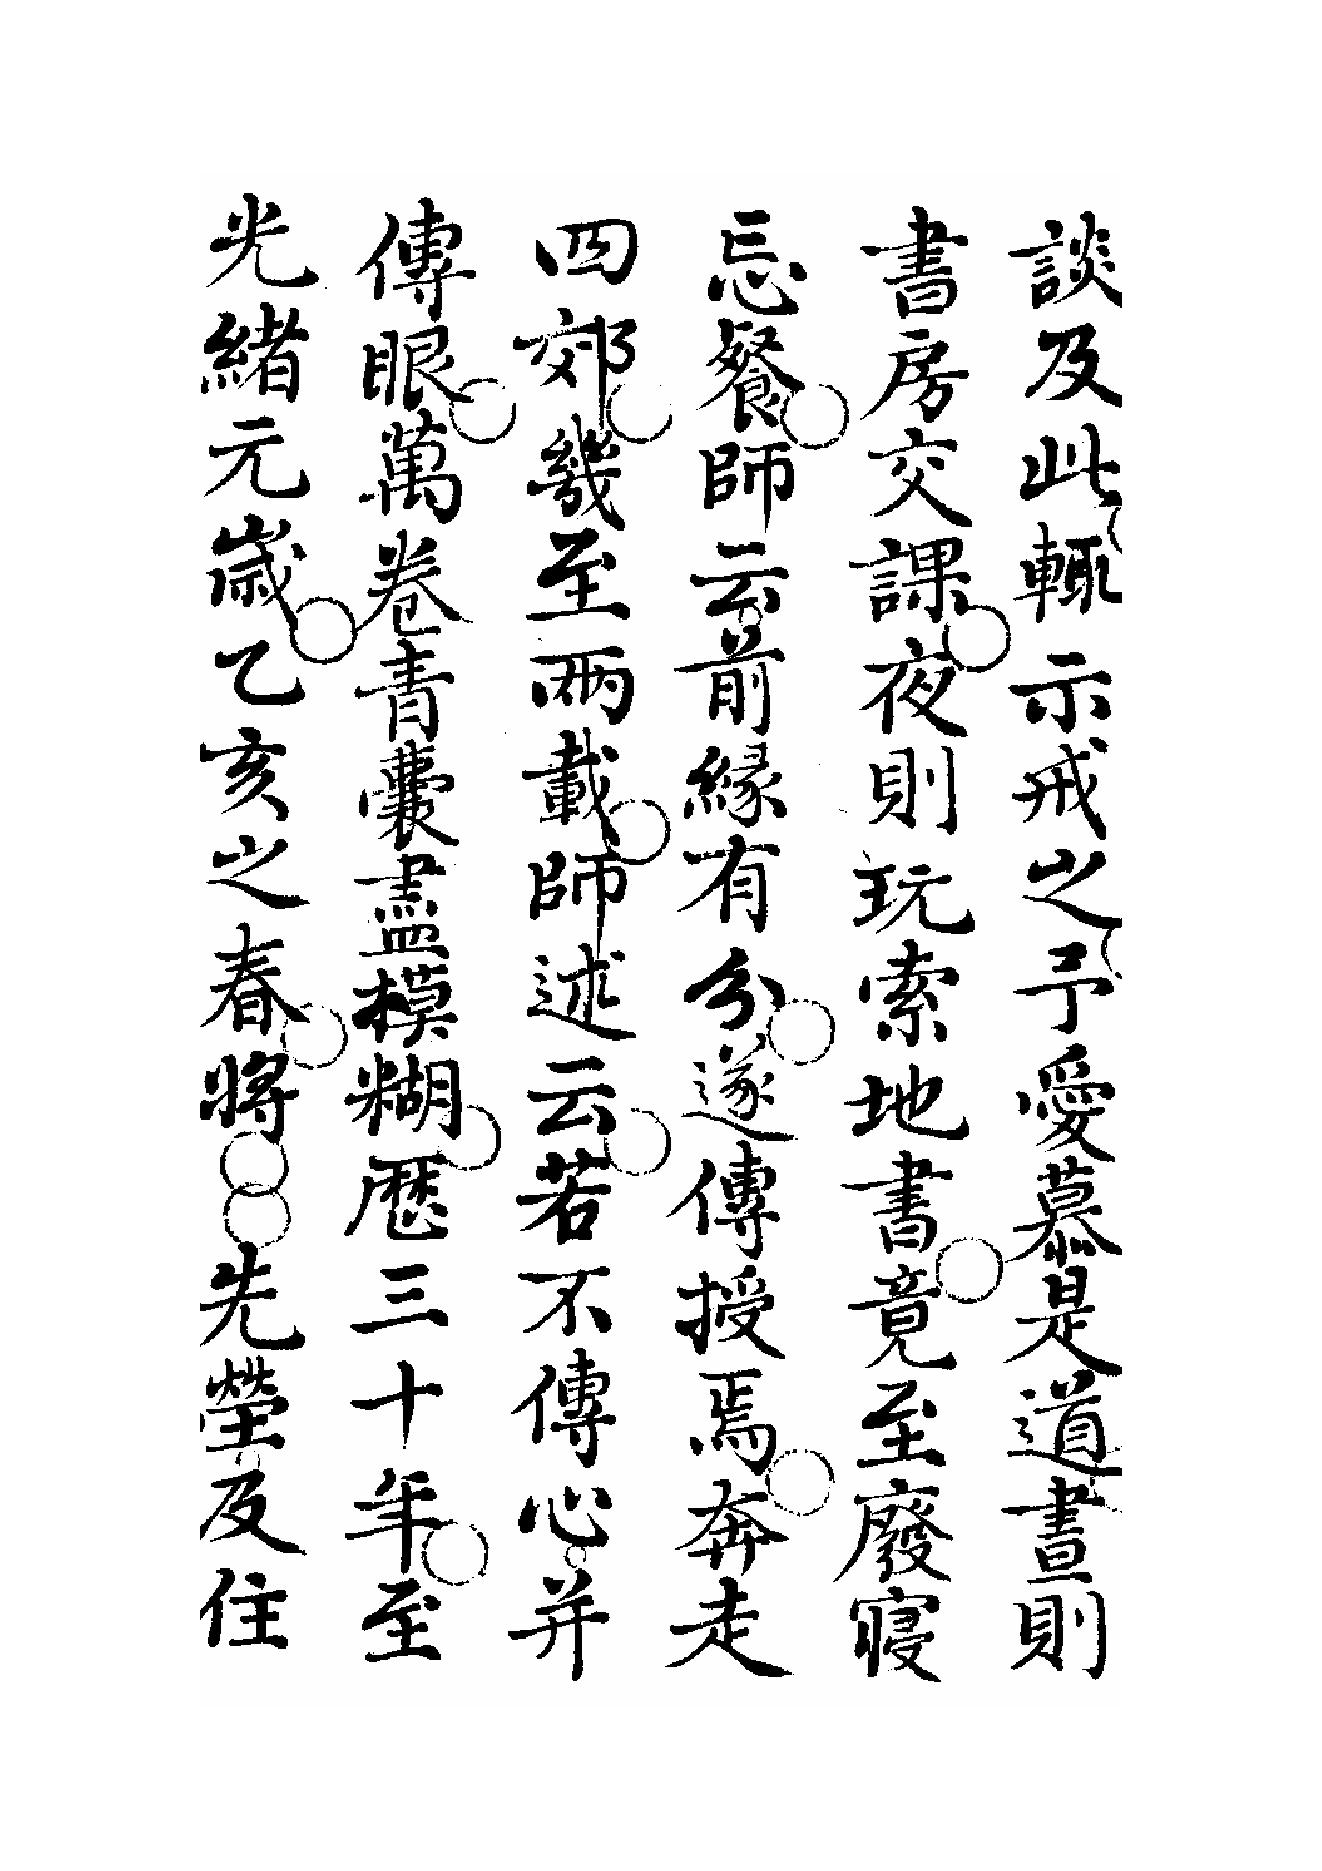 談及此輙示戒之予愛慕是道晝則
書房交課夜則玩索地書竟至廢寢
忘餐師云前緣有分遂傳授焉奔走
四郊幾至兩載師述云若不傳心并
傳眼萬卷青囊盡模糊歷三十年至
光緒元歲乙亥之春將先塋及住